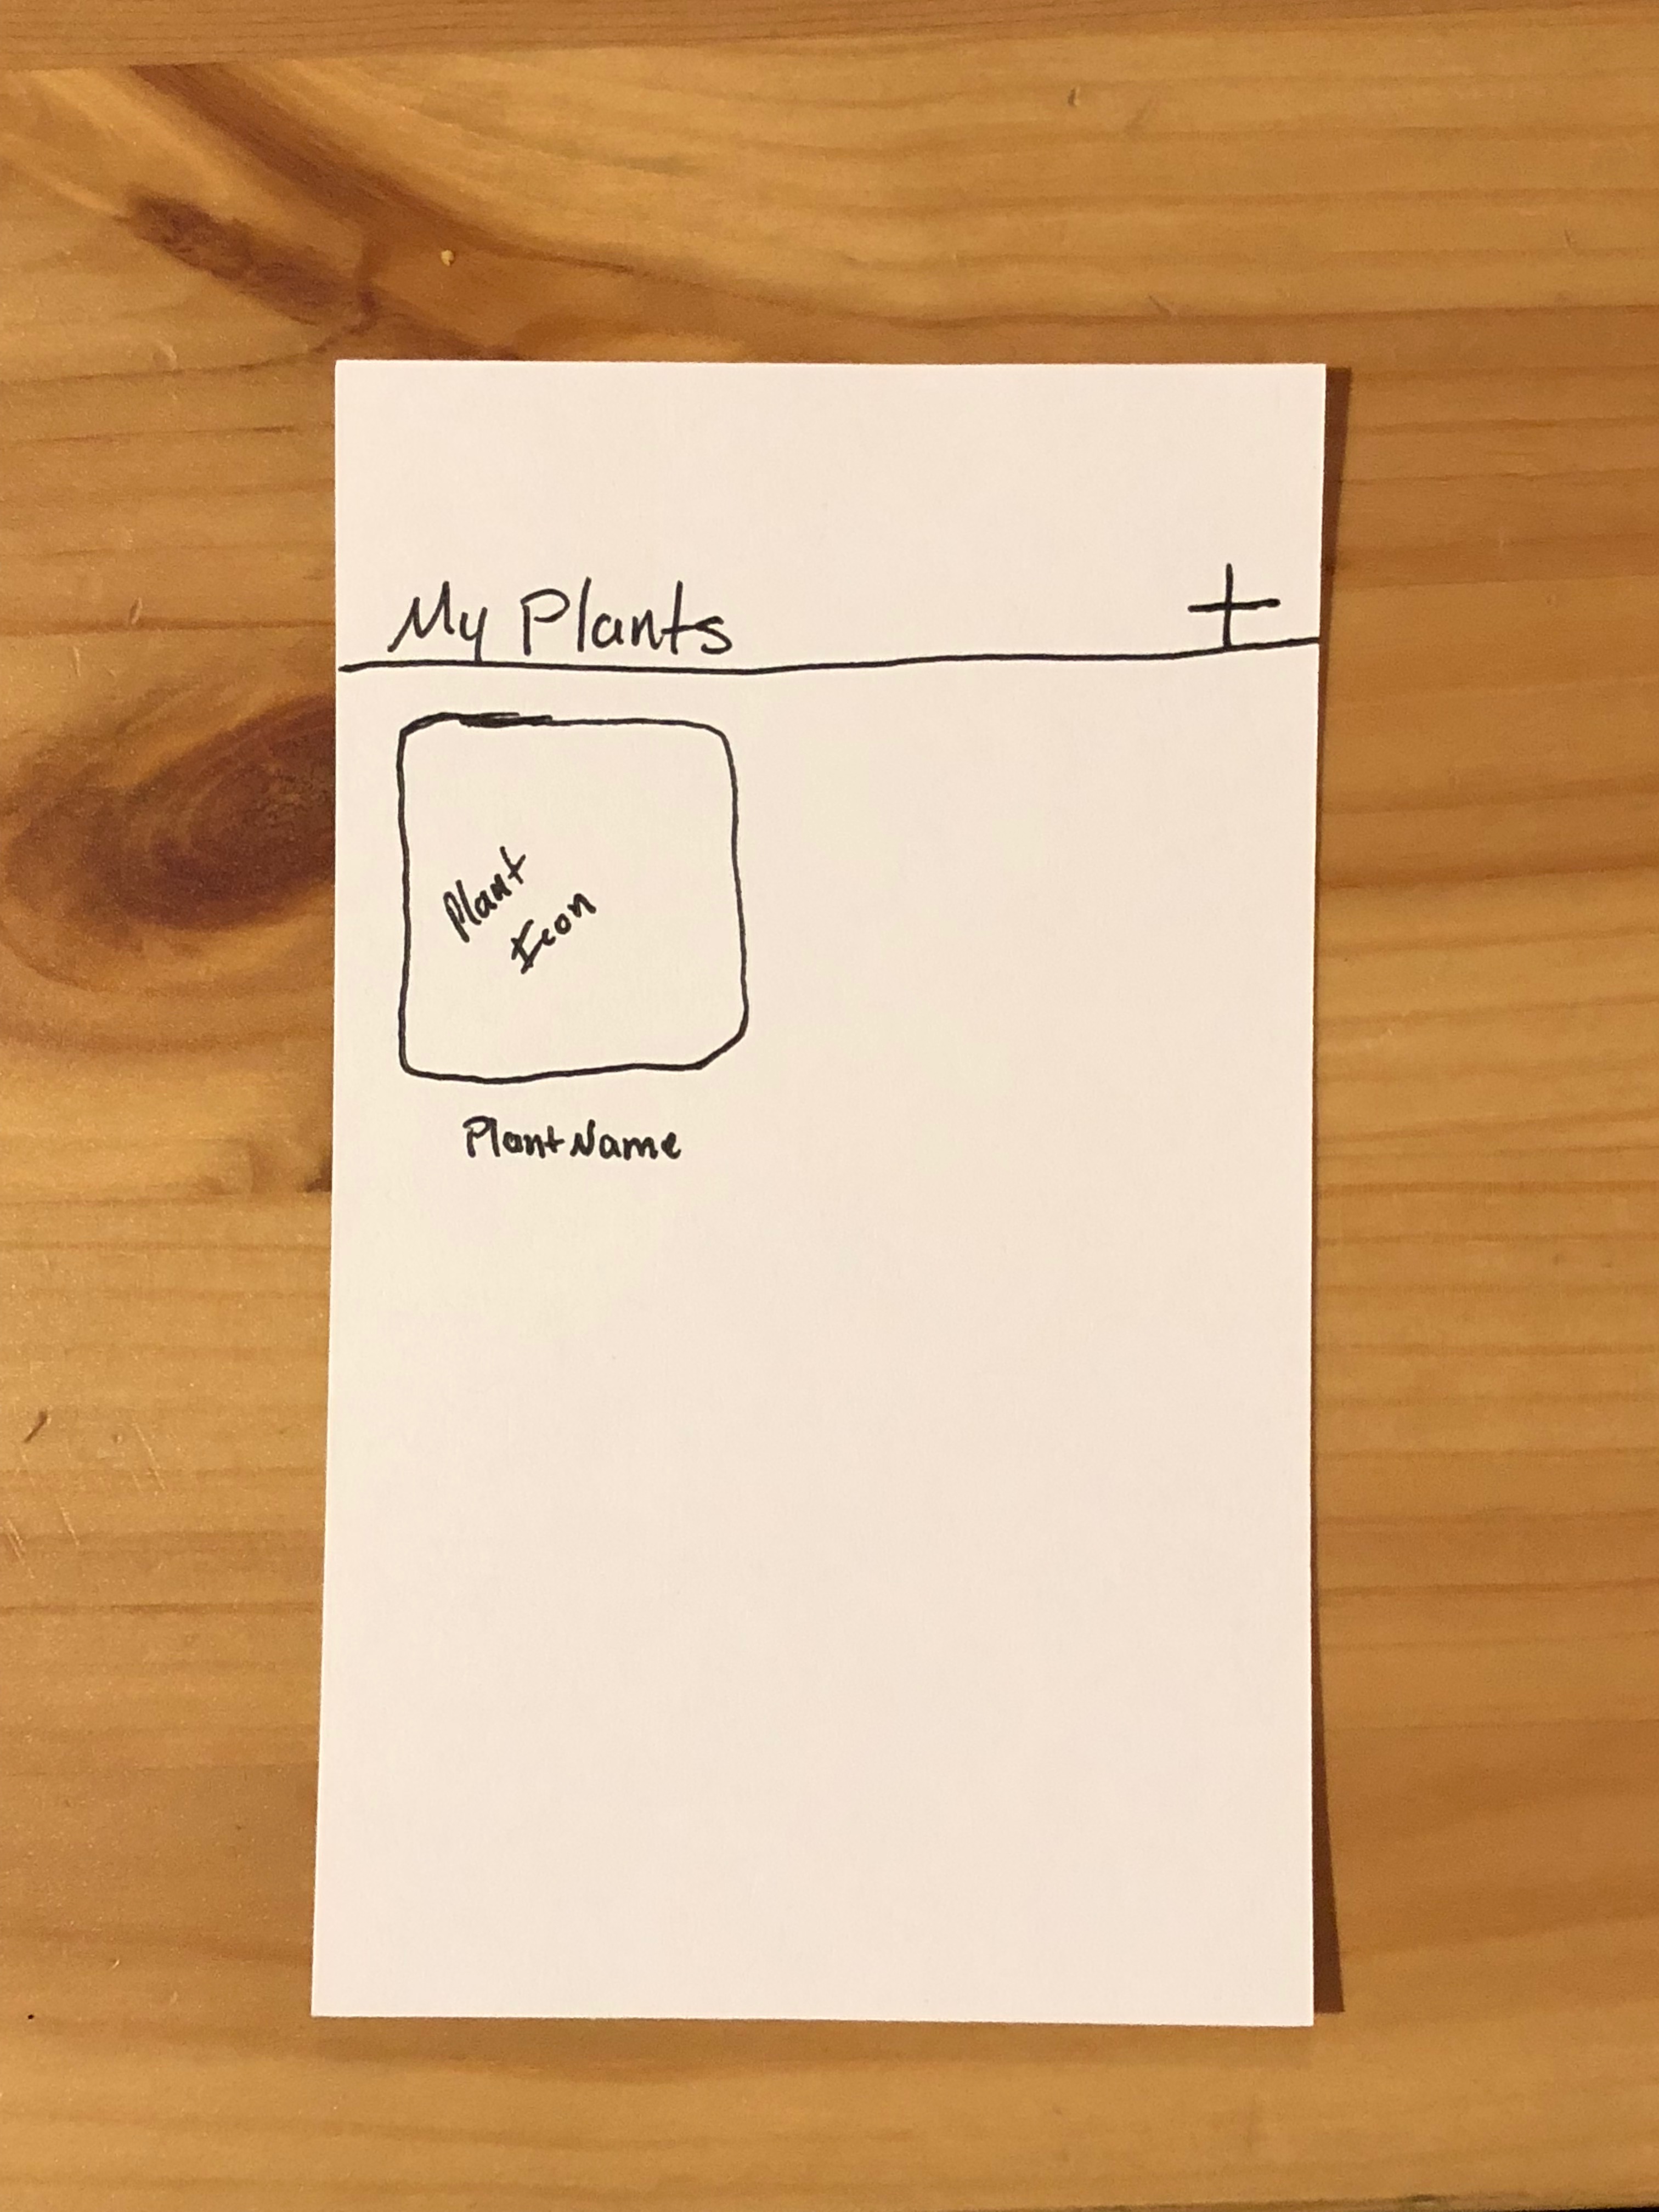 My Plants +
Plant
Icon
Plant Name